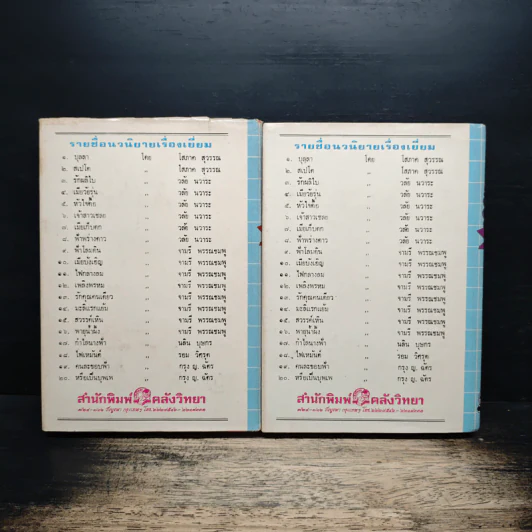 รายชื่อนวนิยายเรื่องเยี่ยม
๑. บุลลา โดย โสภาค สุวรรณ
๒. สเปโค ,, โสภาค สุวรรณ
๓. รักผลิใบ ,, วลัย นวาระ
๔. เมื่อวัยรุ่น ,, วลัย นวาระ
๕. หัวใจ ,, วลัย นวาระ
๖. เจ้าสาวเชลย ,, วลัย นวาระ
๗. เมื่อเก็บตก ,, วลัย นวาระ
๘. ฟ้าพร่างดาว ,, วลัย นวาระ
๙. ฟ้าโลมดิน ,, จามรี พรรณชมพู
๑๐. เมื่อบังเอิญ ,, จามรี พรรณชมพู
๑๑. ไฟกลางลม ,, จามรี พรรณชมพู
๑๒. เพลิงพรหม ,, จามรี พรรณชมพู
๑๓. รักคุณคนเดียว ,, จามรี พรรณชมพู
๑๔. มะลิแรกแย้ม ,, จามรี พรรณชมพู
๑๕. สวรรค์เห็น ,, จามรี พรรณชมพู
๑๖. พายุน้ำผึ้ง ,, จามรี พรรณชมพู
๑๗. กำไลนางฟ้า ,, นลิน บุษกร
๑๘. ไฟเหมันต์ ,, รอม รัศรุต
๑๙. คนละขอบฟ้า ,, กรุง ญ. ฉัตร
๒๐. หรือเป็นบุพเพ ,, กรุง ญ. ฉัตร
สำนักพิมพ์ คลังวิทยา
รายชื่อนวนิยายเรื่องเยี่ยม
๑. บุลลา โดย โสภาค สุวรรณ
๒. สเปโค ,, โสภาค สุวรรณ
๓. รักผลิใบ ,, วลัย นวาระ
๔. เมื่อวัยรุ่น ,, วลัย นวาระ
๕. หัวใจ ,, วลัย นวาระ
๖. เจ้าสาวเชลย ,, วลัย นวาระ
๗. เมื่อเก็บตก ,, วลัย นวาระ
๘. ฟ้าพร่างดาว ,, วลัย นวาระ
๙. ฟ้าโลมดิน ,, จามรี พรรณชมพู
๑๐. เมื่อบังเอิญ ,, จามรี พรรณชมพู
๑๑. ไฟกลางลม ,, จามรี พรรณชมพู
๑๒. เพลิงพรหม ,, จามรี พรรณชมพู
๑๓. รักคุณคนเดียว ,, จามรี พรรณชมพู
๑๔. มะลิแรกแย้ม ,, จามรี พรรณชมพู
๑๕. สวรรค์เห็น ,, จามรี พรรณชมพู
๑๖. พายุน้ำผึ้ง ,, จามรี พรรณชมพู
๑๗. กำไลนางฟ้า ,, นลิน บุษกร
๑๘. ไฟเหมันต์ ,, รอม รัศรุต
๑๙. คนละขอบฟ้า ,, กรุง ญ. ฉัตร
๒๐. หรือเป็นบุพเพ ,, กรุง ญ. ฉัตร
สำนักพิมพ์ คลังวิทยา